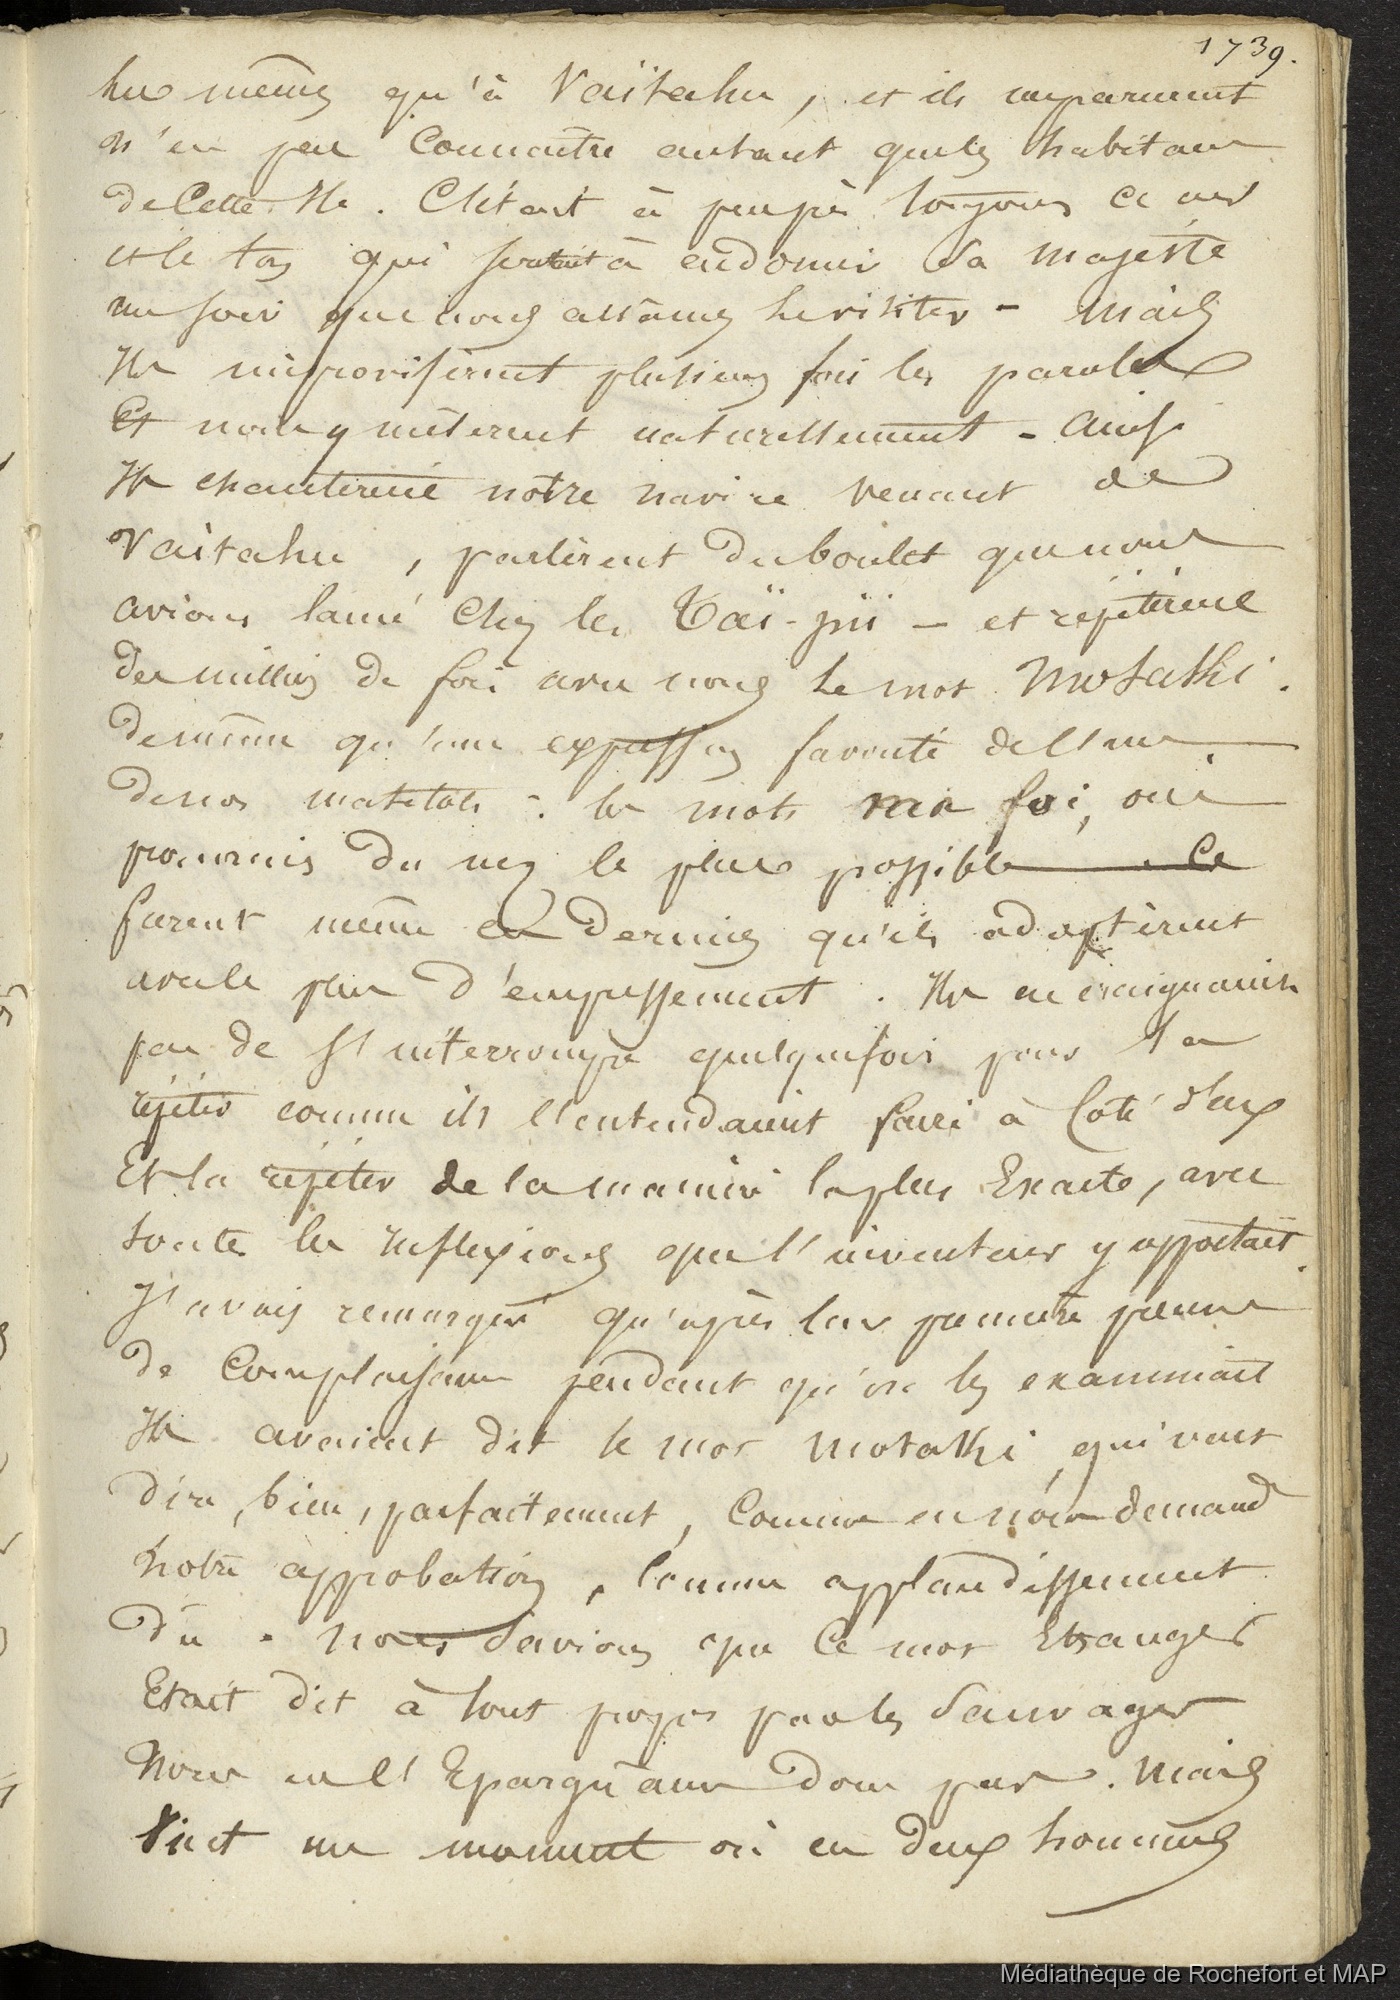 1739.
les mêmes qu'à Vaïtahu, et ils me parurent
n'en pas connaitre autant que les habitans
de cette Ile. C'était à peu près toujours ce air
et le ton qui servait à endormir Sa majesté
un soir que nous allâmes le visiter - mais
Ils improvisèrent plusieurs fois les paroles
Et nous y mêlèrent naturellement - ainsi
Ils chantèrent notre navire venant de
Vaïtahu, parlèrent du boulet que nous
avions lancé chez les Taï-pii - et répétèrent
des milliers de fois avec nous le mot Motakki.
de même qu'une expression favorite de l'un
de nos matelots : les mots ma foi, oui
du nez le plus possible - Ce
furent même ces derniers qu'ils adoptèrent
avec le plus d'empressement. Ils ne craignaient
pas de s'interrompre quelquefois pour la
répéter comme ils l'entendaient faire à coté d'eux
Et la répéter de la manière la plus Exacte, avec
toutes les inflexions que l'inventeur y apportait.
J'avais remarqué qu'après leur première preuve
de complaisance pendant qu'on les examinait
Ils avaient dit le mot motakki, qui veut
dire, bien, parfaitement, comme en nous demand
notre approbation, comme applaudissement
dû. nous savions que ce mot Etranger
Etait dit à tout propos par les Sauvages
Nous ne l'Epargnâmes donc pas. Mais
Vint un moment où ces deux hommes
Médiathèque de Rochefort et MAP